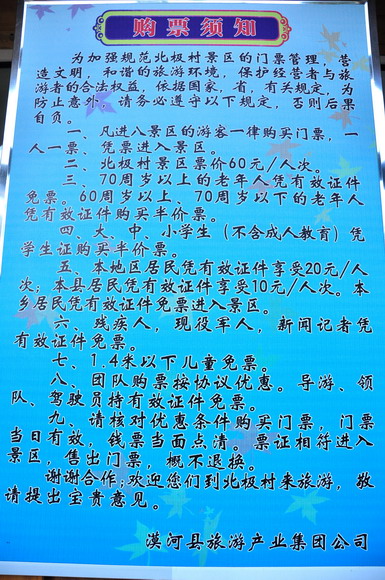 购票须知
为加强规范北极村景区的门票管理，营
造文明，和谐的旅游环境，保护经营者与旅
游者的合法权益，依据国家，省，有关规定，为
防止意外，请务必遵守以下规定，否则后果
自负。
一、凡进入景区的游客一律购买门票，一
人一票、凭票进入景区。
二、北极村景区票价60元/人次。
三、70周岁以上的老年人凭有效证件
免票。60周岁以上、70周岁以下的老年人
凭有效证件购买半价票。
四、大、中、小学生（不含成人教育）凭
学生证购买半价票。
五、本地区居民凭有效证件享受20元/人
次；本县居民凭有效证件享受10元/人次。本
乡居民凭有效证件免票进入景区。
六、残疾人，现役军人，新闻记者凭
有效证件免票。
七、1.4米以下儿童免票。
八、团队购票按协议优惠。导游、领
队、驾驶员持有效证件免票。
九、请核对优惠条件购买门票，门票
当日有效，钱票当面点清。票证相符进入
景区，售出门票，概不退换。
谢谢合作;欢迎您们到北极村来旅游，敬
请提出宝贵意见。
漠河县旅游产业集团公司